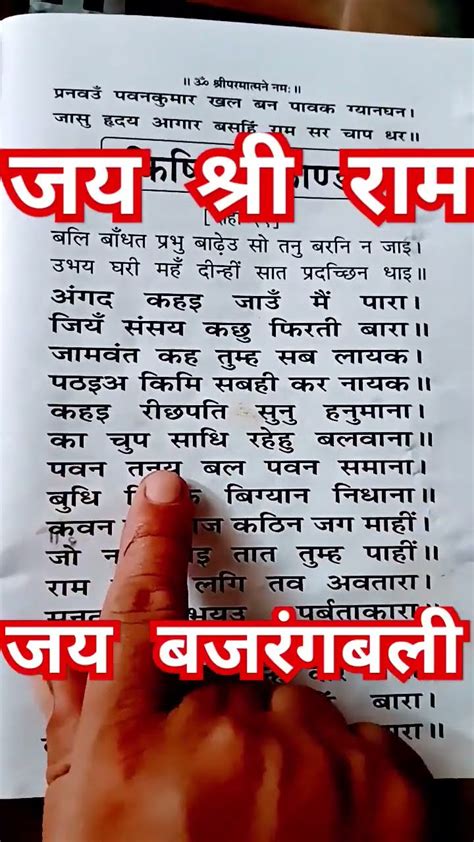 ॥ ॐ श्रीपरमात्मने नमः ॥
प्रनवउँ पवनकुमार खल बन पावक ग्यानघन।
जासु हृदय आगार बसहिं राम सर चाप धर॥
जय श्री राम
बलि बाँधत प्रभु बाढ़ेउ सो तनु बरनि न जाइ।
उभय घरी महँ दीन्हीं सात प्रदच्छिन धाइ॥
अंगद कहइ जाउँ मैं पारा।
जियँ संसय कछु फिरती बारा॥
जामवंत कह तुम्ह सब लायक।
पठइअ किमि सबही कर नायक॥
कहइ रीछपति सुनु हनुमाना।
का चुप साधि रहेहु बलवाना॥
पवन तनय बल पवन समाना।
बुधि बिग्यान निधाना॥
कवन कठिन जग माहीं।
जो तात तुम्ह पाहीं॥
राम लगि तव अवतारा।
पर्बताकारा॥
जय बजरंगबली
बारा।